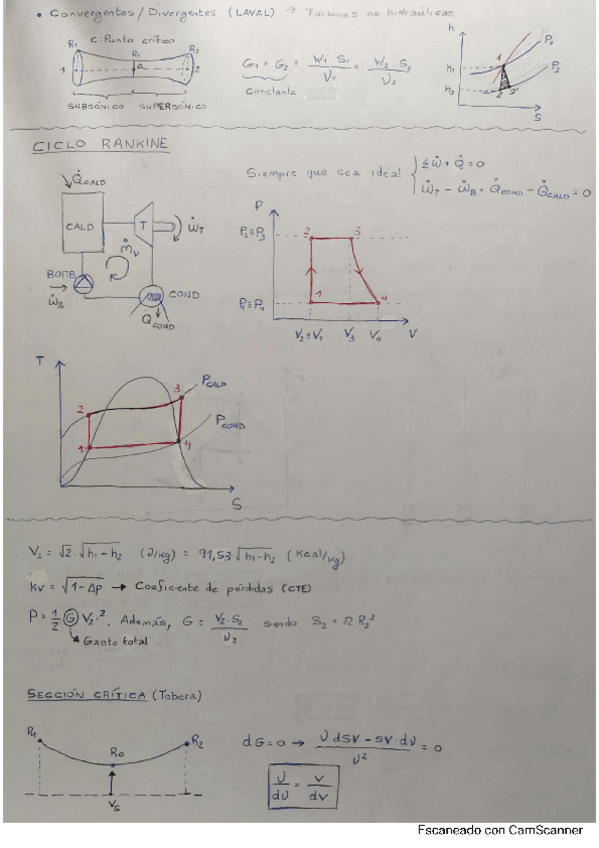 • Convergentes / Divergentes (LAVAL) → Turbinas no hidráulicas
C: Punto crítico
R1 Rc R2
1 a 2
SUBSÓNICO SUPERSÓNICO
G1 = G2 = W1 · S1 / ν1 = W2 · S2 / ν2
Constante
h
P1
P2
h1
h2
1
2 2'
S
CICLO RANKINE
Siempre que sea ideal { ΣẆ + Q̇ = 0
ẆT − ẆB + Q̇COND − Q̇CALD = 0
Q̇CALD
CALD
T
ẆT
ṁV
BOMB
ẆB
COND
Q̇COND
P
P2 = P3
P1 = P4
2 3
1 4
V2 = V1 V3 V4 V
T
PCALD
PCOND
2 3
1 4
S
V2 = √2 · √h1 − h2 (J/kg) = 91,53 √h1 − h2 (Kcal/kg)
KV = √1 − Δp → Coeficiente de pérdidas (CTE)
P = 1/2 G V2'². Además, G = V2 · S2 / ν2 siendo S2 = π R2²
Gasto total
SECCIÓN CRÍTICA (Tobera)
R1 R0 R2
VS
dG = 0 → ν dSV − SV · dν / ν² = 0
ν/dν = V/dV
Escaneado con CamScanner